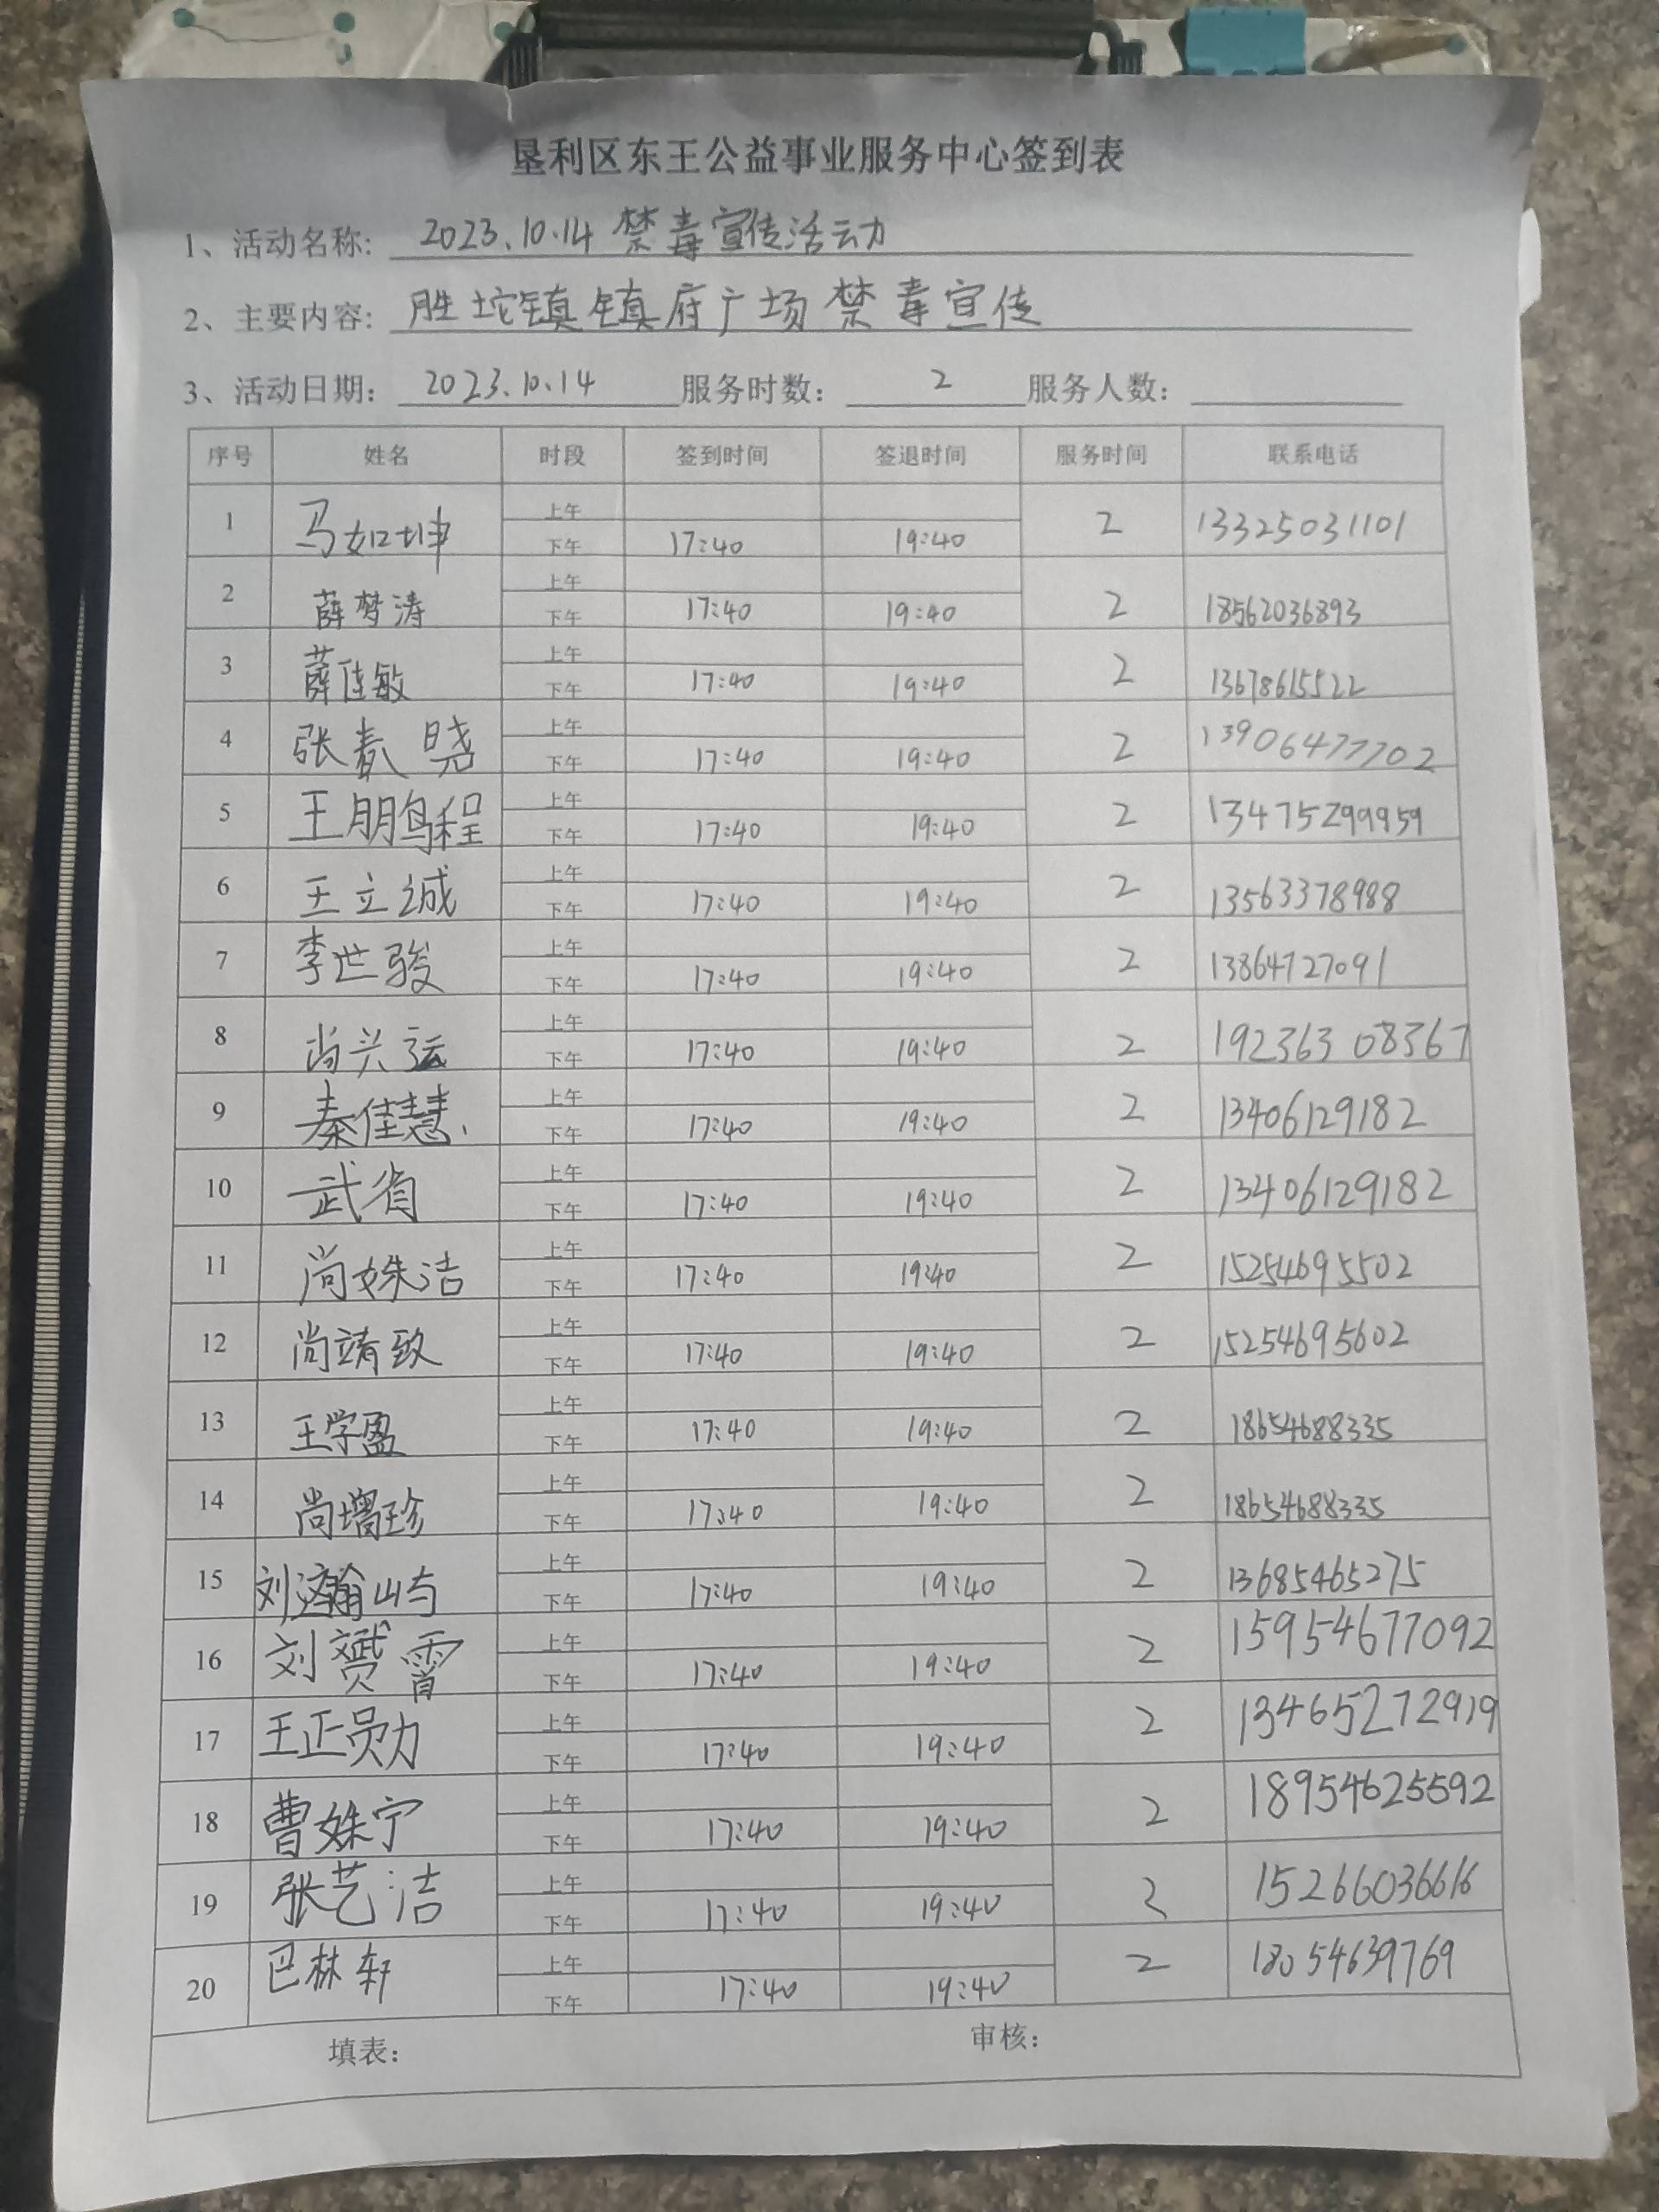 垦利区东王公益事业服务中心签到表
1、活动名称: 2023.10.14 禁毒宣传活动
2、主要内容: 胜坨镇镇府广场禁毒宣传
3、活动日期: 2023.10.14 服务时数: 2 服务人数:
序号 姓名 时段 签到时间 签退时间 服务时间 联系电话
1 马如坤 上午 2 13325031101
下午 17:40 19:40
2 薛梦涛 上午 2 18562036893
下午 17:40 19:40
3 薛佳敏 上午 2 13678615522
下午 17:40 19:40
4 张春晓 上午 2 13906477702
下午 17:40 19:40
5 王鹏程 上午 2 13475299959
下午 17:40 19:40
6 王立诚 上午 2 13563378988
下午 17:40 19:40
7 李世骏 上午 2 13864727091
下午 17:40 19:40
8 尚兴运 上午 2 19236308367
下午 17:40 19:40
9 秦佳慧 上午 2 13406129182
下午 17:40 19:40
10 武省 上午 2 13406129182
下午 17:40 19:40
11 尚姝洁 上午 2 15254695502
下午 17:40 19:40
12 尚靖致 上午 2 15254695602
下午 17:40 19:40
13 王学盈 上午 2 18654688335
下午 17:40 19:40
14 尚增珍 上午 2 18654688335
下午 17:40 19:40
15 刘瀚屿 上午 2 13685465275
下午 17:40 19:40
16 刘赟霄 上午 2 15954677092
下午 17:40 19:40
17 王正勋 上午 2 13465272919
下午 17:40 19:40
18 曹姝宁 上午 2 18954625592
下午 17:40 19:40
19 张艺洁 上午 2 15266036616
下午 17:40 19:40
20 巴林轩 上午 2 18054639769
下午 17:40 19:40
填表: 审核: